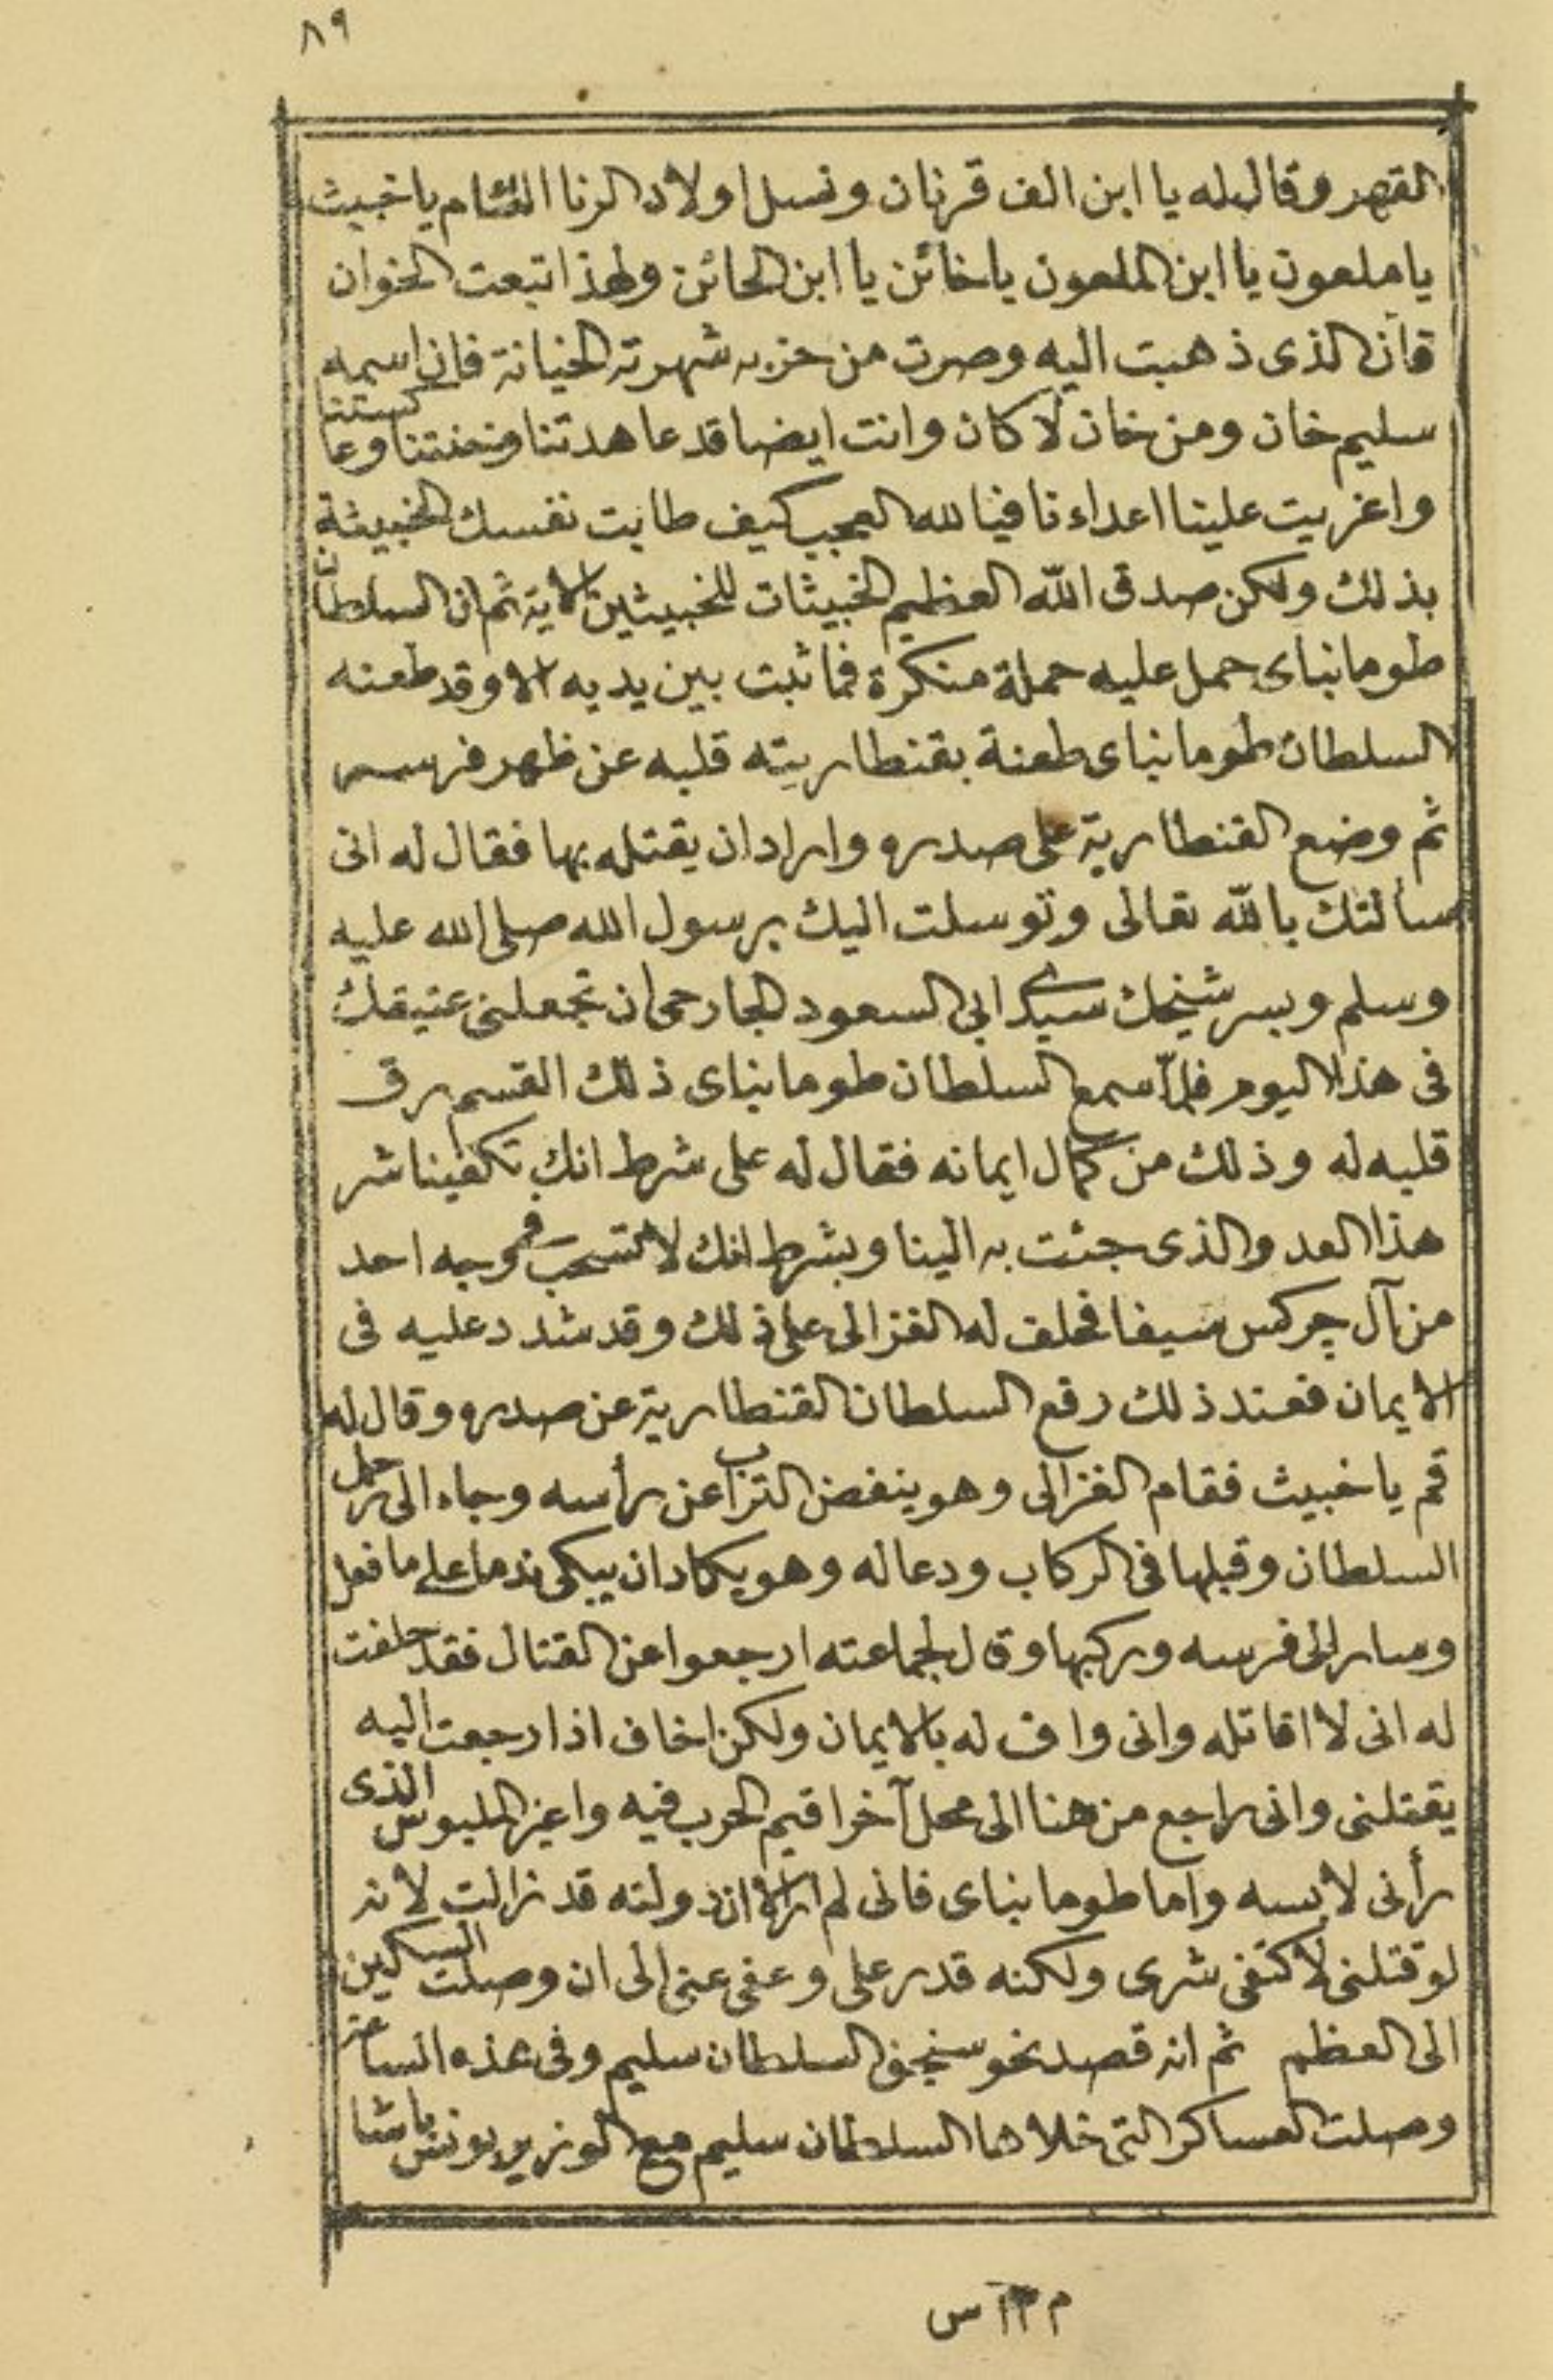 ٨٩
القهر وقال له يا ابن الف قرنان ونسل اولاد الزنا اللئام يا خبيث
يا ملعون يا ابن الملعون يا خائن يا ابن الخائن ولهذا تبعت الخوان
فان الذى ذهبت اليه وصرت من حزبه شهرته الخيانة فان اسمه
سليم خان ومن خان لا كان وانت ايضا قد عاهدتنا وخنتنا وعاكستنا
واغريت علينا اعداءنا فيا لله العجب كيف طابت نفسك الخبيثة
بذلك ولكن صدق الله العظيم الخبيثات للخبيثين الاية ثم ان السلطان
طومانباى حمل عليه حملة منكرة فما ثبت بين يديه الا وقد طعنه
السلطان طومانباى طعنة بقنطاريته قلبه عن ظهر فرسه
ثم وضع القنطارية على صدره واراد ان يقتله بها فقال له انى
سألتك بالله تعالى وتوسلت اليك برسول الله صلى الله عليه
وسلم وبسر شيخك سيدى ابى السعود الجارحى ان تجعلنى عتيقك
فى هذا اليوم فلما سمع السلطان طومانباى ذلك القسم رق
قلبه له وذلك من كمال ايمانه فقال له على شرط انك تكفينا شر
هذا العدو الذى جئت به الينا وبشرط انك لا تسحب فى وجه احد
من آل چركس سيفا فحلف له الغزالى على ذلك وقد شدد عليه فى
الايمان فعند ذلك رفع السلطان القنطارية عن صدره وقال له
قم يا خبيث فقام الغزالى وهو ينفض التراب عن رأسه وجاء الى رجل
السلطان وقبلها فى الركاب ودعا له وهو يكاد ان يبكى ندما على ما فعل
وسار الى فرسه وركبها وقال لجماعته ارجعوا عن القتال فقد حلفت
له انى لا اقاتله وانى واف له بالايمان ولكن اخاف اذا رجعت اليه
يقتلنى وانى راجع من هنا الى محل آخر اقيم الحرب فيه واغير الملبوس الذى
رأنى لابسه واما طومانباى فانى لم ار الا ان دولته قد زالت لانه
لو قتلنى لاكتفى شرى ولكنه قدر على وعفى عنى الى ان وصلت السكين
الى العظم ثم انه قصد نحو سنجق السلطان سليم وفى هذه الساعة
وصلت العساكر التى خلاها السلطان سليم مع الوزير يونس باشا